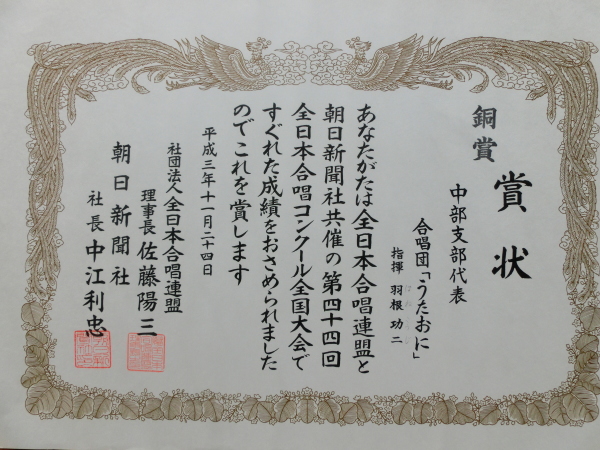 賞状
銅賞
中部支部代表
合唱団「うたおに」
指揮 羽根功二
あなたがたは全日本合唱連盟と
朝日新聞社共催の第四十四回
全日本合唱コンクール全国大会で
すぐれた成績をおさめられました
のでこれを賞します
平成三年十一月二十四日
社団法人全日本合唱連盟
理事長 佐藤陽三
朝日新聞社
社長 中江利忠